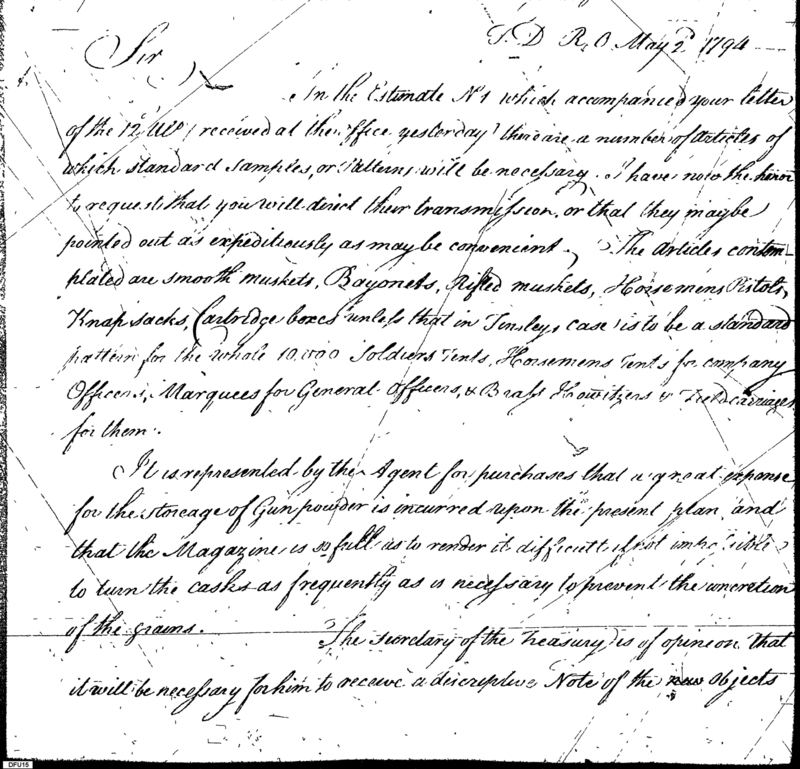 T. D R. O May 2d 1794
Sir
In the Estimate No 1 which accompanied your letter
of the 12 Ulto (received at the office yesterday) there are a number of articles of
which standard samples, or Patterns will be necessary. I have now the honor
to request that you will direct their transmission, or that they may be
pointed out as expeditiously as may be convenient. The articles contem-
plated are smooth muskets, Bayonets, Rifled muskets, Horsemens Pistols,
Knapsacks, Cartridge boxes unless that in Tinsleys case is to be a standard
pattern for the whole 10,000 Soldiers Tents, Horsemens Tents for company
Officers, Marquees for General Officers, & Brass Howitzers & Field carriages
for them.
It is represented by the Agent for purchases that a great expense
for the storeage of Gunpowder is incurred upon the present plan and
that the Magazine is so full as to render it difficult if not impossible
to turn the casks as frequently as is necessary to prevent the concretion
of the grains.
The Secretary of the Treasury is of opineon that
it will be necessary for him to receive a discriptive Note of the new objects
DFU15